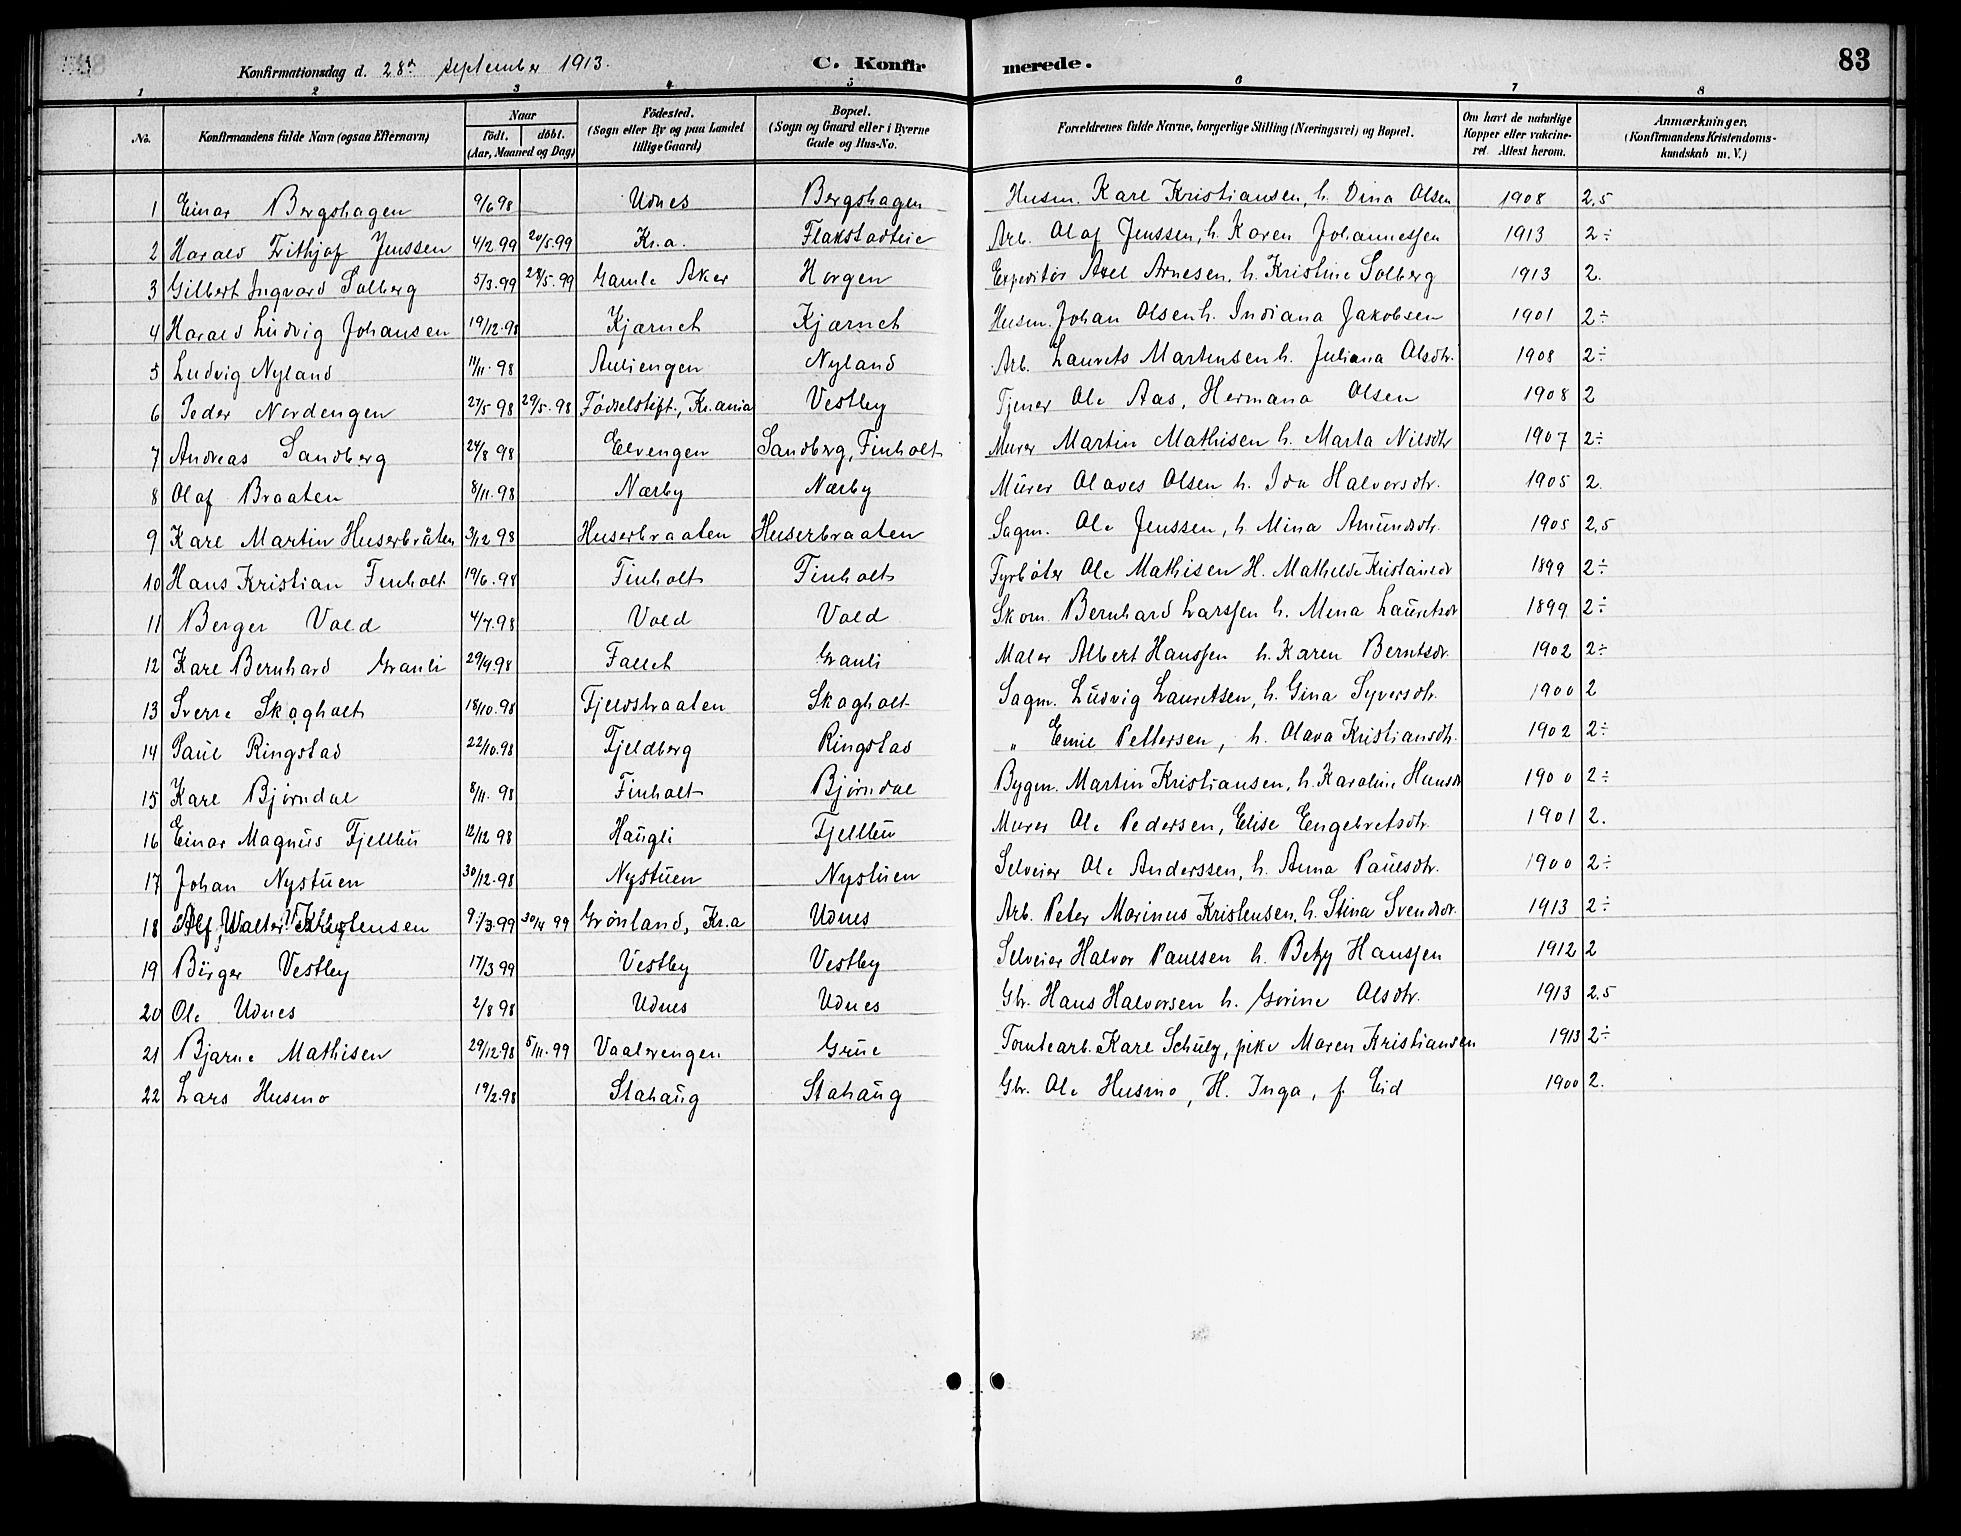 Konfirmationsdag d. 28de september 1913. C. Konfirmerede. 83
1 2 3 4 5 6 7 8
No. Konfirmandens fulde Navn (ogsaa Efternavn) Naar födt. döbt. (Aar, Maaned og Dag) Födested. (Sogn eller By og paa Landet tillige Gaard) Bopæl. (Sogn og Gaard eller i Byerne Gade og Hus-No. Forældrenes fulde Navne, borgerlige Stilling (Næringsvei) og Bopæl. Om havt de naturlige Kopper eller vakcineret. Attest herom. Anmærkninger. (Konfirmandens Kristendomskundskab m. V.)
1 Einar Bergshagen 9/6 98 Udnes Bergshagen Husm. Karl Kristiansen, h. Dina Olsen 1908 2,5
2 Harald Frithjof Jenssen 4/2 99 20/5.99 Kr.a. Flakstadteie Arb. Olaf Jenssen, h. Karen Johannessen 1913 2÷
3 Gilbert Ingvard Solberg 5/3.99 28/5.99 Gamle Aker Horgen Expeditör Axel Arnesen, h. Kristine Solberg 1913 2.
4 Harald Ludvig Johansen 19/12.98 Kjærnet Kjærnet Husm. Johan Olsen h. Indiana Jakobsen 1901 2÷
5 Ludvig Nyland 11/11.98 Auliengen Nyland Arb. Laurets Martinsen h. Juliana Olsdtr. 1908 2÷
6 Peder Nordengen 27/5 98 29/5.98 Fødselstift., Kr.ania Vestby Tjener Ole Aas, Hermana Olsen 1908 2
7 Andreas Sandberg 24/8 98 Elvengen Sandberg, Finholt Murer Martin Mathisen h. Marta Nilsdtr 1907 2÷
8 Olaf Braaten 8/11.98 Nærby Nærby Murer Olaves Olsen h. Ida Halvorsdtr. 1905 2.
9 Karl Martin Huserbråten 3/12 98 Huserbraaten Huserbraaten Sagm. Ole Jenssen, h. Mina Amundsdtr. 1905 2,5
10 Hans Kristian Finholt 19/6.98 Finholt Finholt Fyrbøter Ole Mathisen H. Mathilde Kristiansdtr 1899 2÷
11 Berger Vold 4/7.98 Vold Vold Skom. Bernhard Larssen h. Mina Lauretsdtr 1899 2÷
12 Karl Bernhard Granli 29/9.98 Fallet Granli Maler Albert Hanssen h. Karen Berntsdtr. 1902 2÷
13 Sverre Skogholt 18/10.98 Fjeldstraaten Skogholt Sagm. Ludvig Lauretsen, h. Gina Syversdtr. 1900 2
14 Paul Ringstad 22/10.98 Fjeldberg Ringstad " Emil Pettersen, h. Olava Kristiansdtr. 1902 2÷
15 Karl Bjørndal 8/11.98 Finholt Bjørndal Bygm. Martin Kristiansen, h. Karoline Hansdtr 1900 2÷
16 Einar Magnus Fjellbu 12/12 98 Haugli Fjellbu Murer Ole Pedersen, Elise Engebretsdtr. 1901 2.
17 Johan Nystuen 30/12.98 Nystuen Nystuen Selveier Ole Anderssen, h. Anna Paulsdtr. 1900 2÷
18 Alf Walter Kristensen 9/3.99 30/4 99 Grönland, Kr.a Udnes Arb. Peter Marinus Kristensen, h. Stina Svendsdtr. 1913 2÷
19 Birger Vestby 17/3 99 Vestby Vestby Selveier Halvor Paulsen h. Betzy Hanssen 1912 2
20 Ole Udnes 2/8 98 Udnes Udnes Gbr. Hans Halvorsen h. Gorine Olsdtr. 1913 2.5
21 Bjarne Mathisen 29/12.98 5/11.99 Vaalerengen Grue Tomtearb. Karl Schulz, pike Maren Kristiansen 1913 2÷
22 Lars Husmo 19/2.98 Stahaug Stahaug Gbr. Ole Husmo, H. Inga, f. Eid 1900 2.